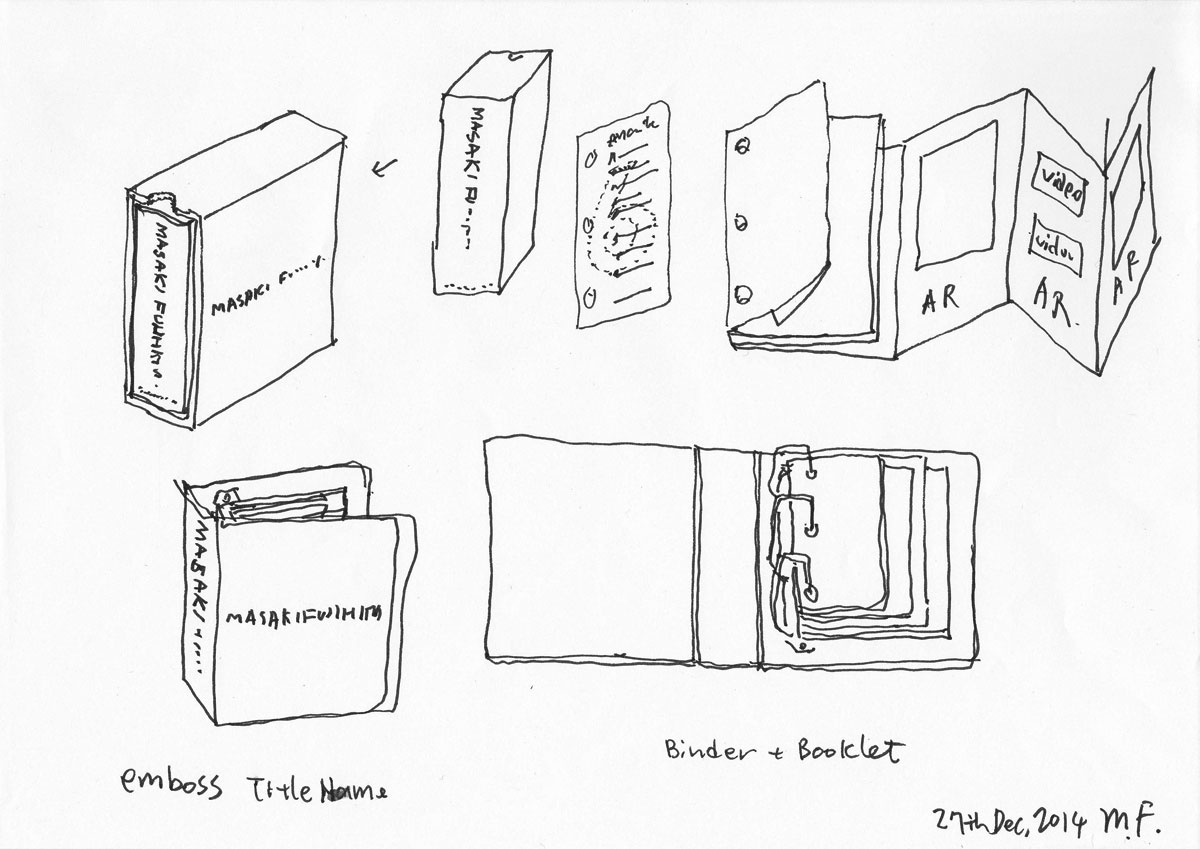 MASAKI FUJIHATA
MASAKI F
MASAKI
AR
video
video
AR.
AR
MASAKI
MASAKI FUJIHATA
emboss Title Name
Binder + Booklet
27th Dec, 2014 M.F.